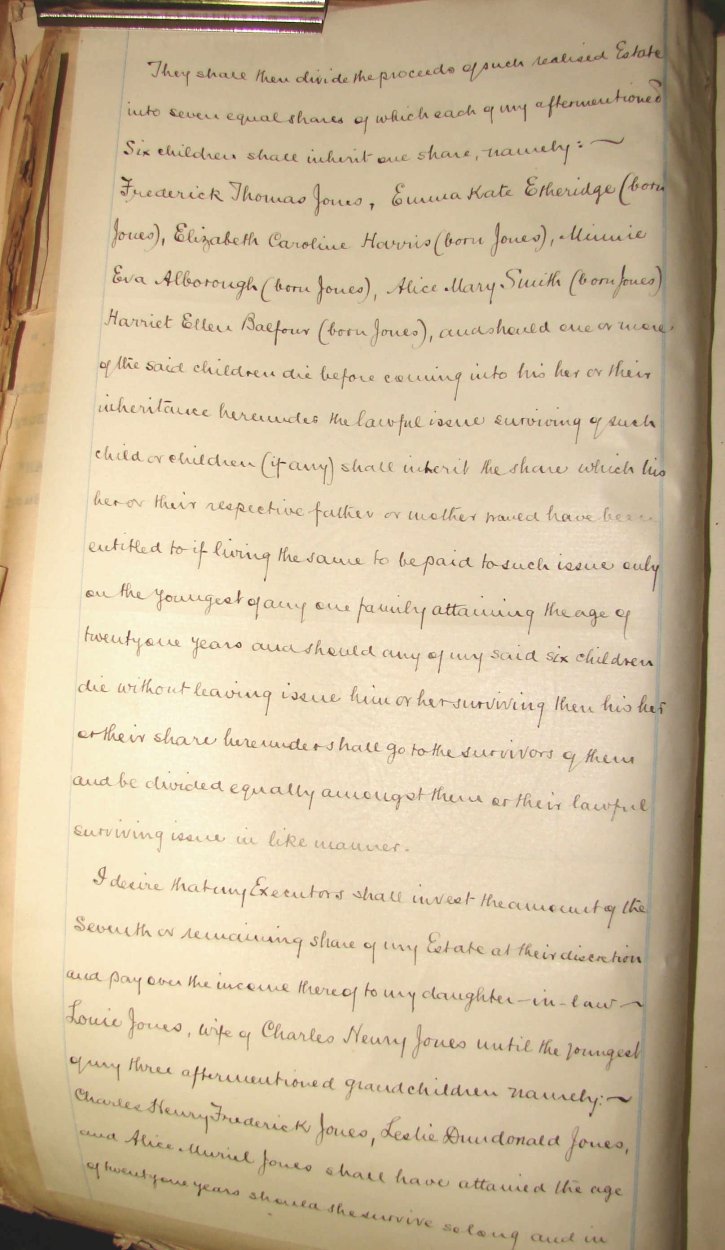 They shall then divide the proceeds of such realised Estate
into seven equal shares of which each of my aftermentioned
Six children shall inherit one share, namely:~
Frederick Thomas Jones, Emma Kate Etheridge (born
Jones), Elizabeth Caroline Harris (born Jones), Minnie
Eva Alborough (born Jones), Alice Mary Smith (born Jones)
Harriet Ellen Balfour (born Jones), and should one or more
of the said children die before coming into his her or their
inheritance hereunder the lawful issue surviving of such
child or children (if any) shall inherit the share which his
her or their respective father or mother would have been
entitled to if living the same to be paid to such issue only
on the youngest of any one family attaining the age of
twentyone years and should any of my said six children
die without leaving issue him or her surviving then his her
or their share hereunder shall go to the survivors of them
and be divided equally amongst them or their lawful
surviving issue in like manner.
I desire that my Executors shall invest the amount of the
Seventh or remaining share of my Estate at their discretion
and pay over the income thereof to my daughter-in-law~
Louie Jones, wife of Charles Henry Jones until the youngest
of my three aftermentioned grandchildren namely:~
Charles Henry Frederick Jones, Leslie Dundonald Jones,
and Alice Muriel Jones shall have attained the age
of twentyone years should she survive so long and in